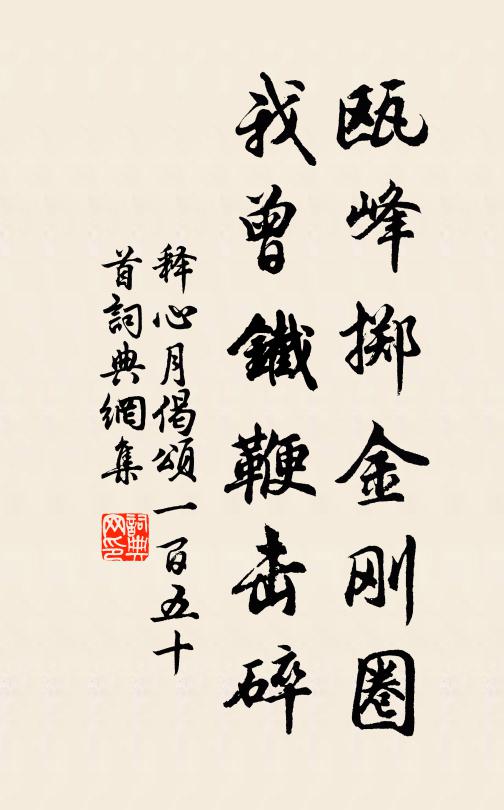 瓯峰掷金刚圈
我曾鐵鞭击碎
释心月偈頌一百五十
首詞典網集
詞典网印